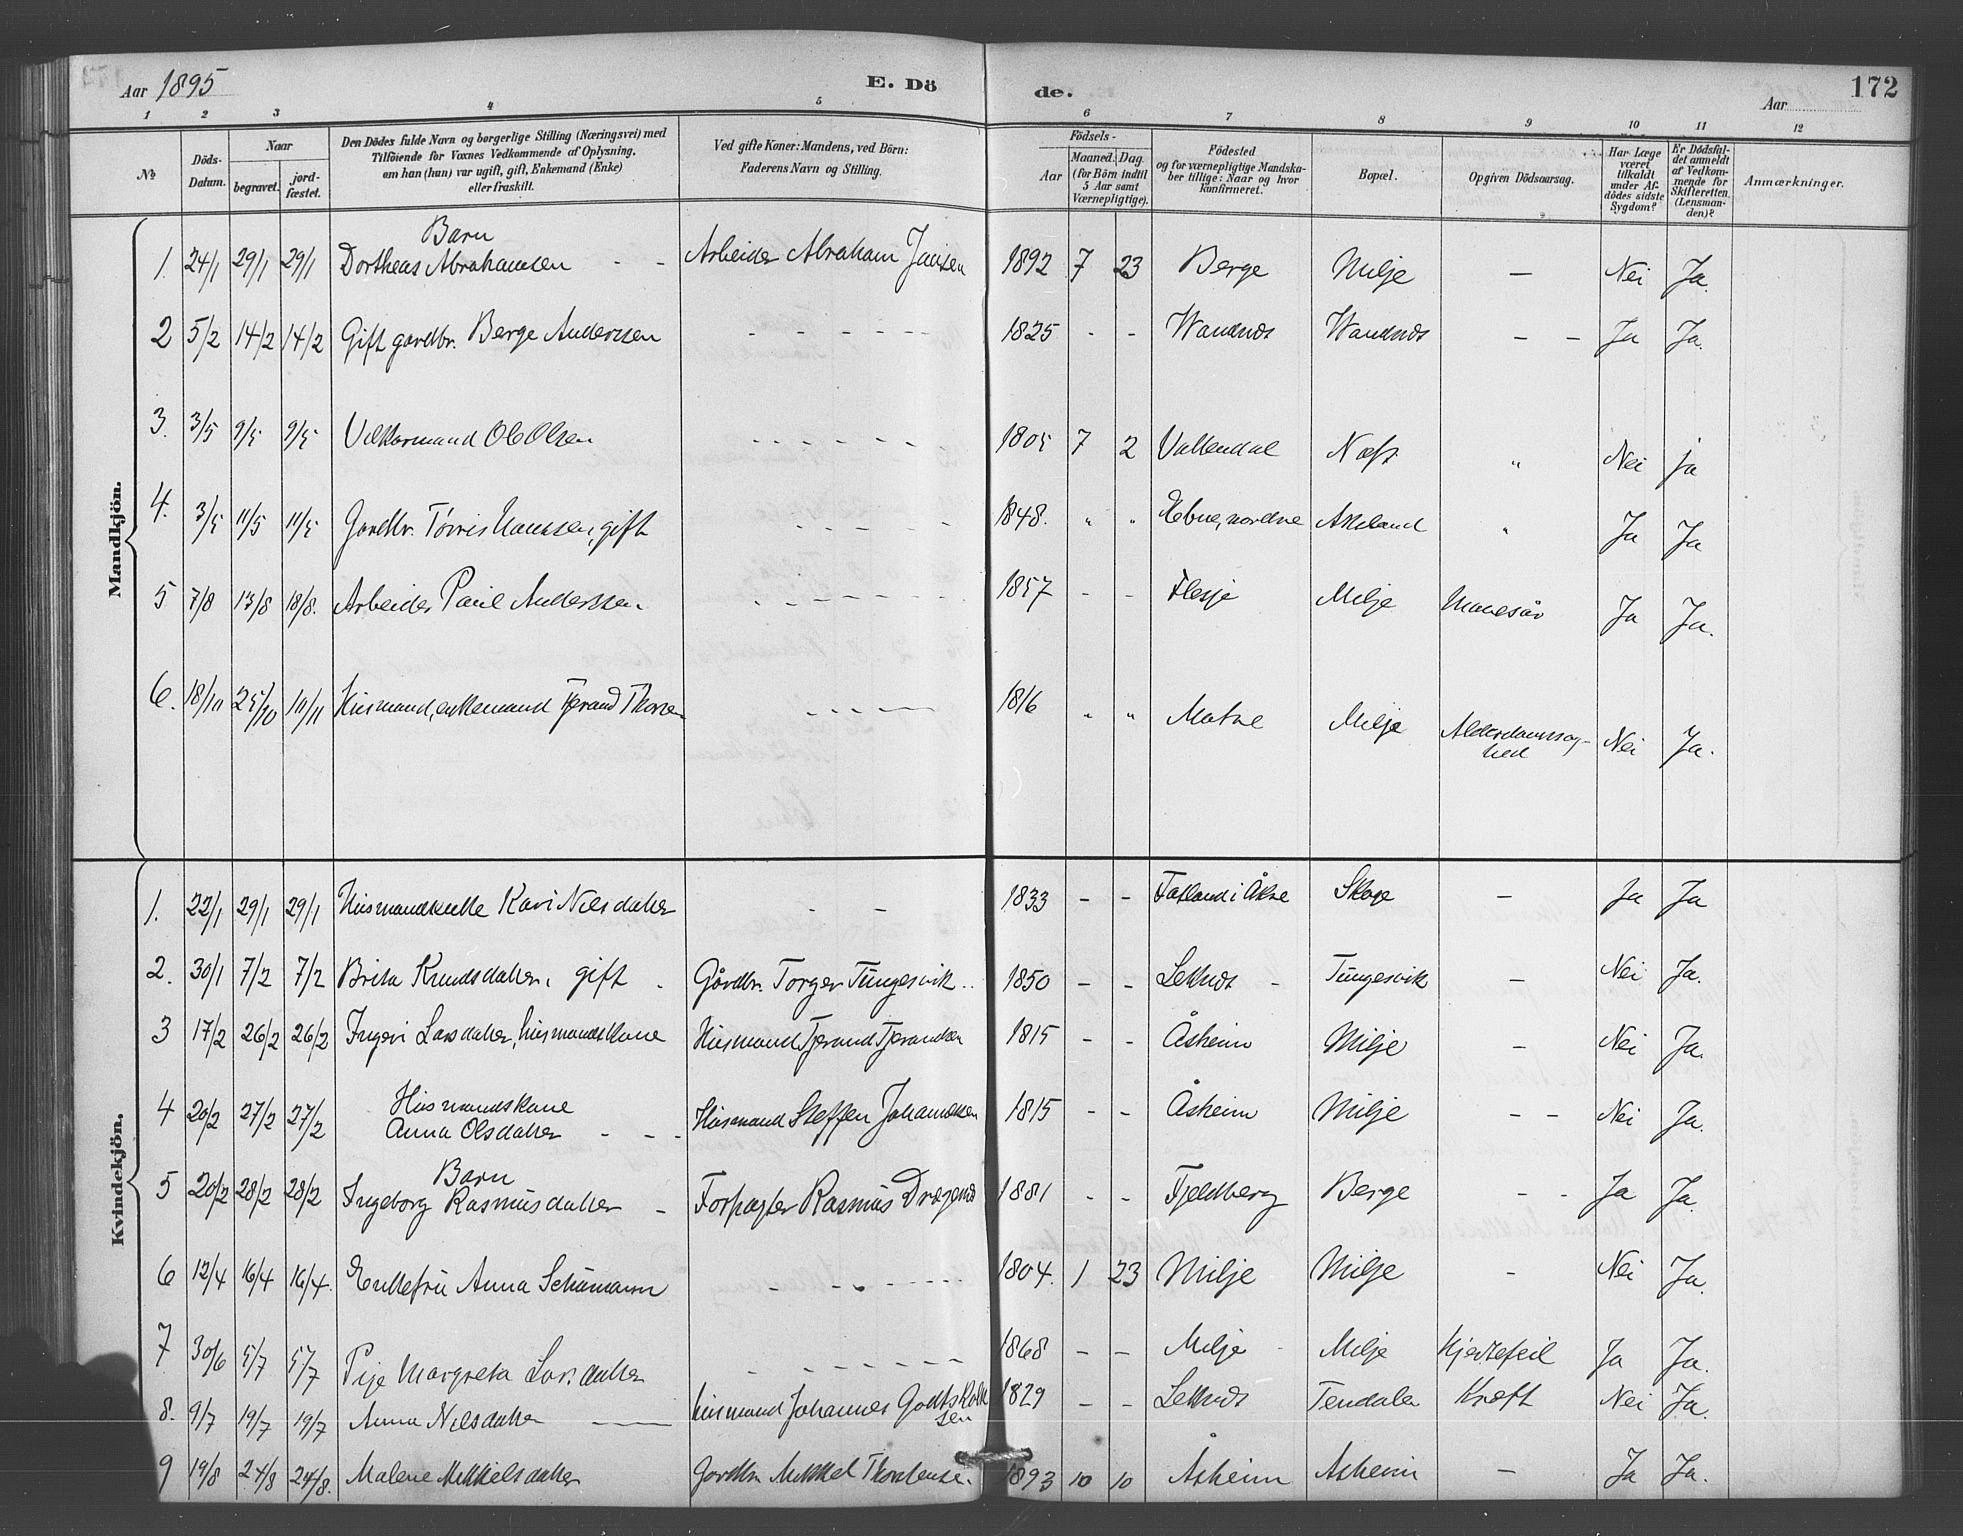 Aar 1895 E. Dö de. Aar 172
1 2 3 4 5 6 7 8 9 10 11 12
№ Döds-Datum. Naar begravet. jordfæstet. Den Dödes fulde Navn og borgerlige Stilling (Næringsvei) med Tilföiende for Voxnes Vedkommende af Oplysning, om han (hun) var ugift, gift, Enkemand (Enke) eller fraskilt. Ved gifte Koner: Mandens, ved Börn: Faderens Navn og Stilling. Födsels- Aar Maaned. Dag. (for Börn indtil 5 Aar samt Værnepligtige). Födested og for værnepligtige Mandskaber tillige: Naar og hvor konfirmeret. Bopæl. Opgiven Dödsaarsag. Har Læge været tilkaldt under Afdödes sidste Sygdom? Er Dödsfaldet anmeldt af Vedkommende for Skifteretten (Lensmanden)? Anmærkninger.
Mandkjön.
Barn
1. 24/1 29/1 29/1 Dortheas Abrahamsen - - Arbeider Abraham Jansen 1892 7 23 Berge Milje — Nei Ja.
2 5/2 14/2 14/2 Gift gardbr. Berge Andersen - - - - - - 1825 - - Wandnds Wandnds — — Ja Ja.
3. 3/5 9/5 9/5 Vilkarmand Ole Olsen - - - - - - 1805 7 2 Vallendal Næst " Nei ja
4. 3/5 11/5 11/5 Gardbr. Tørris Hanssen, gift - - - - - 1848. " " Ebne, nordre Axeland " Ja Ja
5 7/8 13/8 18/8. Arbeider Paul Anderssen. - - - - - - 1857 - - Flesje Milje Mavesår Ja Ja.
6. 18/10 25/10 10/11 Husmand, enkemand Tjerand Thorsen - - - - 1816 " " Matre Milje Alderdomssvaghed Nei Ja.
Kvindekjön.
1. 22/1 29/1 29/1 Husmandsenke Kari Nilsdatter - - 1833 - - Fatland i Åkre Skoge — Ja Ja
2. 30/1 7/2 7/2 Brita Knudsdatter, gift . Gårdbr. Torger Tungesvik .. 1850 - - Leknds - Tungesvik — Nei Ja.
3 17/2 26/2 26/2 Ingeri Larsdatter, husmandskone Husmand Tjerand Tjerandsen 1815 - - Åsheim Milje — Nei Ja.
Husmandskone
4 20/2 27/2 27/2 Anna Olsdatter - - - Husmand Steffen Johannessen 1815 - - Åsheim Milje - - Nei Ja.
Barn
5 20/2 28/2 28/2 Ingeborg Rasmusdatter - Forpagter Rasmus 1881 - - Fjeldberg Berge - - Ja Ja.
6 12/4 16/4 16/4. Enkefru Anna Schumann - - - - - - 1804. 1 23 Milje Milje - Nei Ja.
7 30/6 5/7 5/7 Margreta Larsdatter - - - - - - 1868 - - Milje - Milje Hjertefeil Ja Ja.
8. 9/7 19/7 19/7 Anna Nilsdatter — husmand Johannes Godtskalk 1829 - - Leknds Tendalen Kræft Nei Ja.
sen
9 19/8 24/8 24/8. Malene Mikkelsdatter Gardbr. Mikkel 1893 10 10 Åsheim Asheim — Ja Ja.